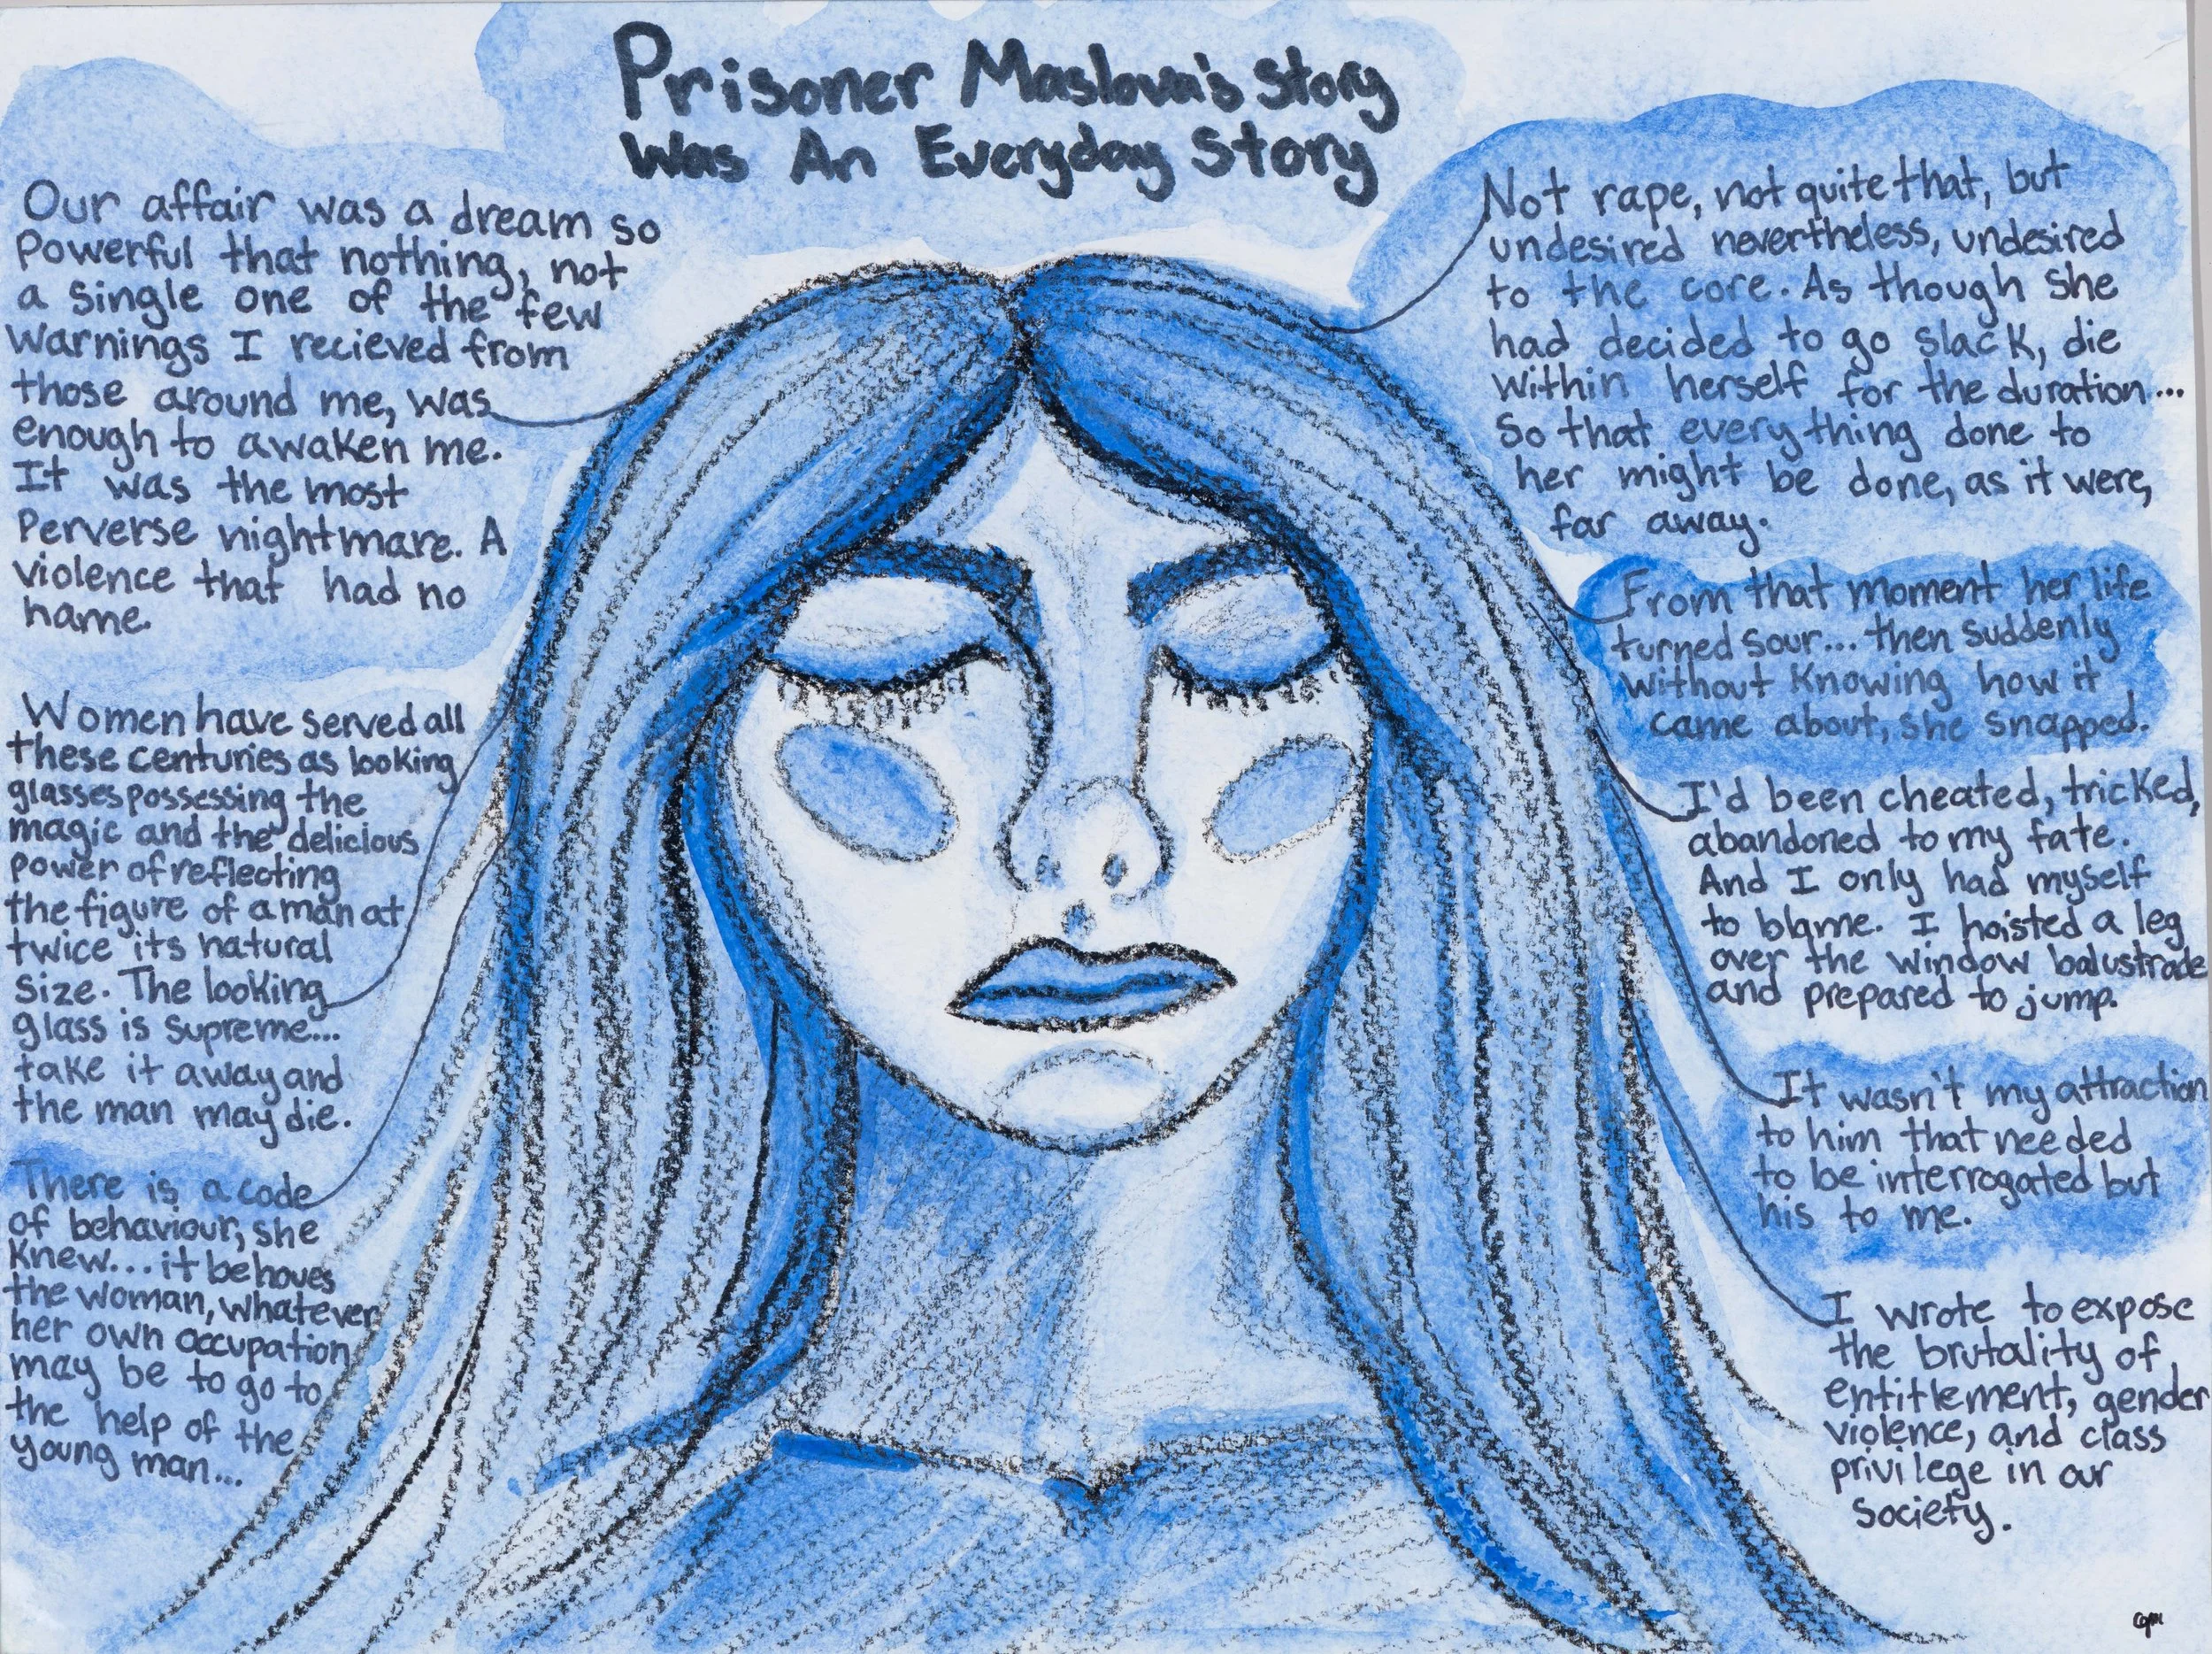 Prisoner Maslova's Story
Was An Everyday Story
Our affair was a dream so
powerful that nothing, not
a single one of the few
warnings I recieved from
those around me, was
enough to awaken me.
It was the most
perverse nightmare. A
violence that had no
name.
Women have served all
these centuries as looking
glasses possessing the
magic and the delicious
power of reflecting
the figure of a man at
twice its natural
size. The looking
glass is supreme...
take it away and
the man may die.
There is a code
of behaviour, she
knew... it behoves
the woman, whatever
her own occupation
may be to go to
the help of the
young man...
Not rape, not quite that, but
undesired nevertheless, undesired
to the core. As though she
had decided to go slack, die
within herself for the duration...
So that everything done to
her might be done, as it were,
far away.
From that moment her life
turned sour... then suddenly
without knowing how it
came about, she snapped.
I'd been cheated, tricked,
abandoned to my fate.
And I only had myself
to blame. I hoisted a leg
over the window balustrade
and prepared to jump.
It wasn't my attraction
to him that needed
to be interrogated but
his to me.
I wrote to expose
the brutality of
entitlement, gender
violence, and class
privilege in our
society.